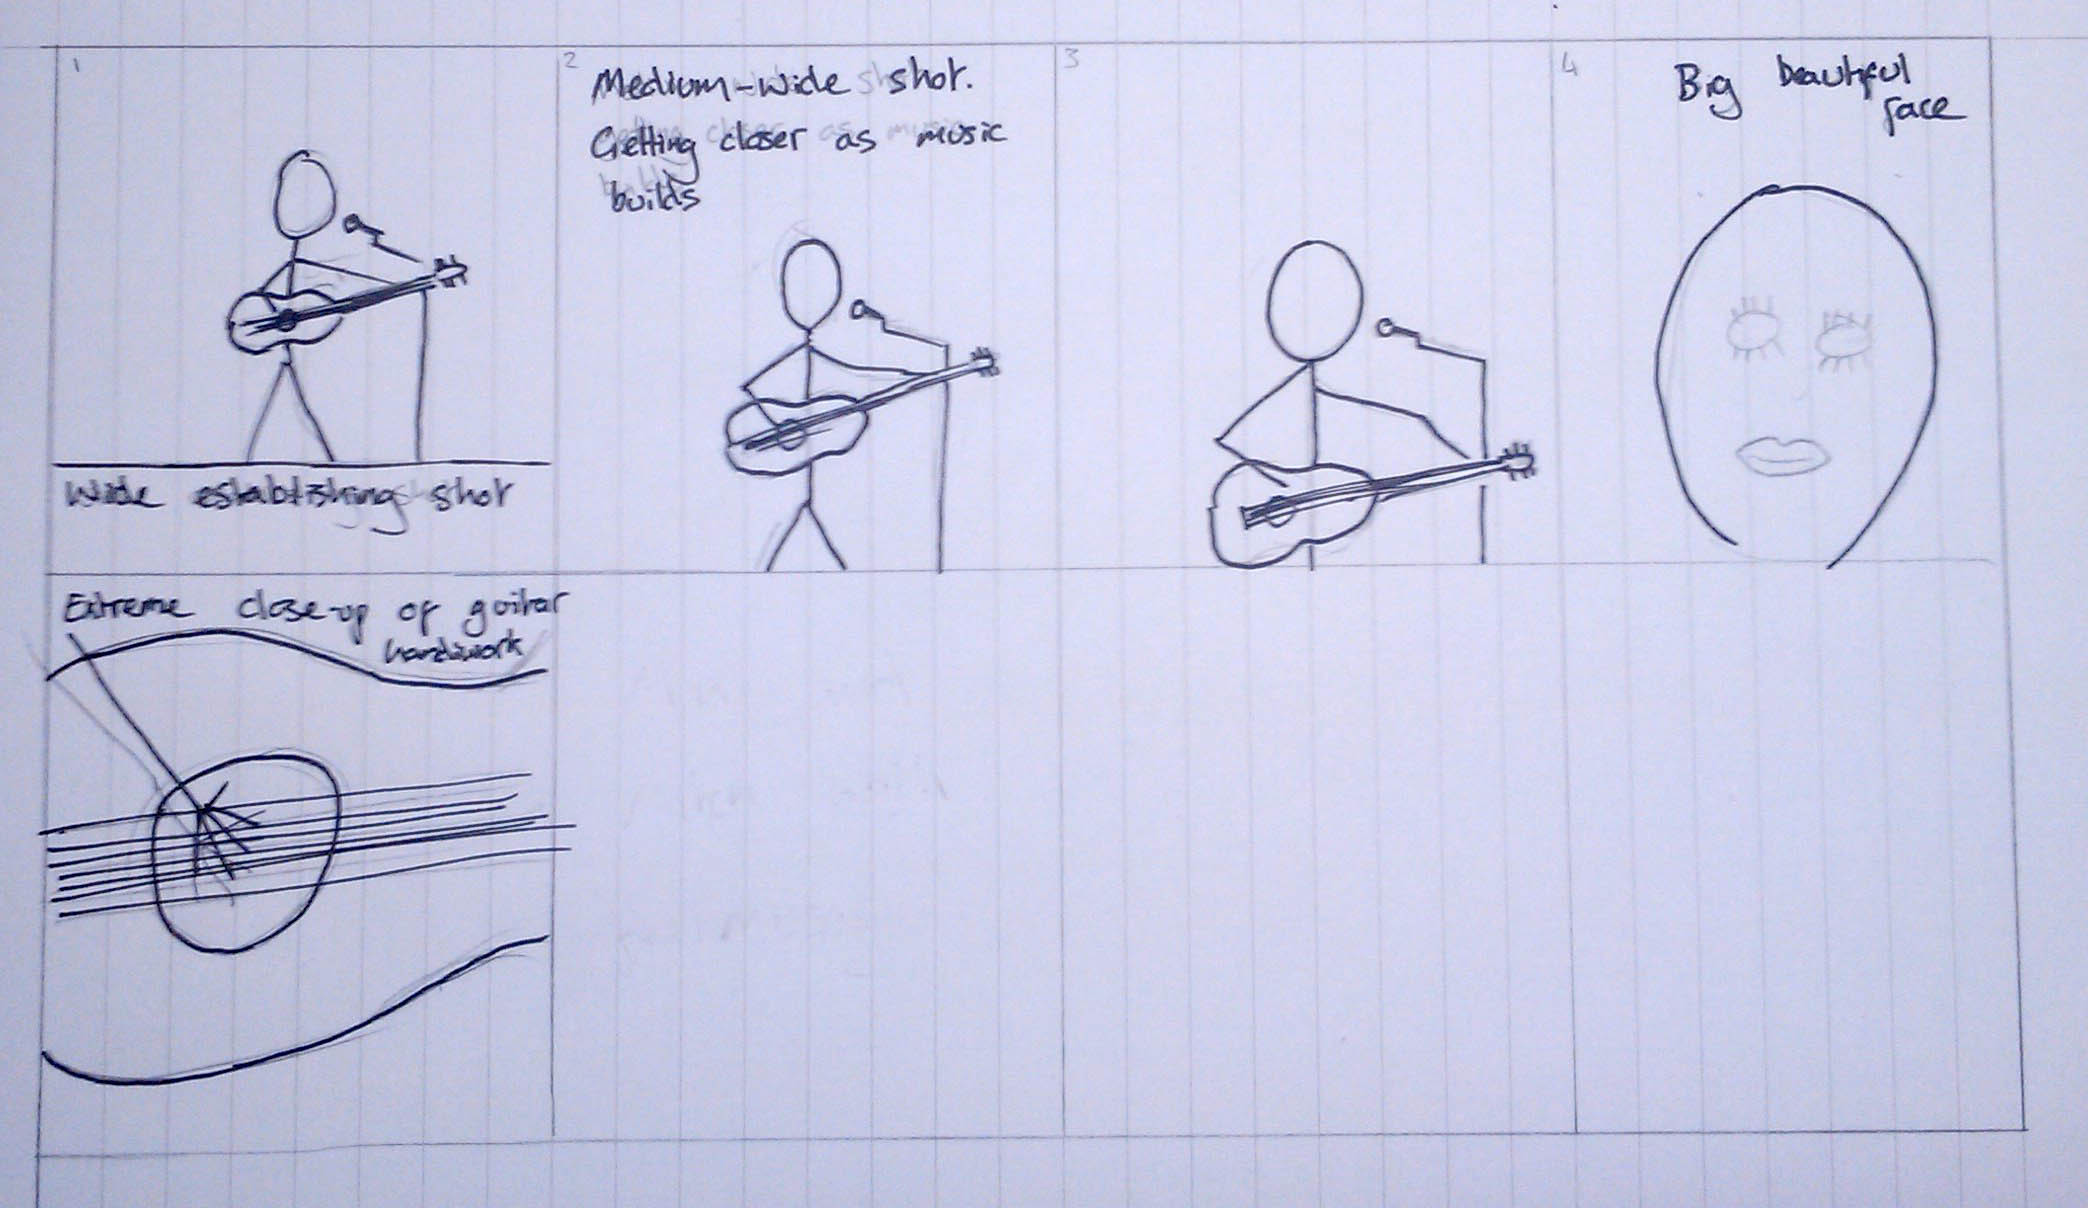 1
Wide establishing shot
2
Medium-wide shot.
Getting closer as music
builds
3
4
Big beautiful
face
Extreme close-up of guitar
handiwork